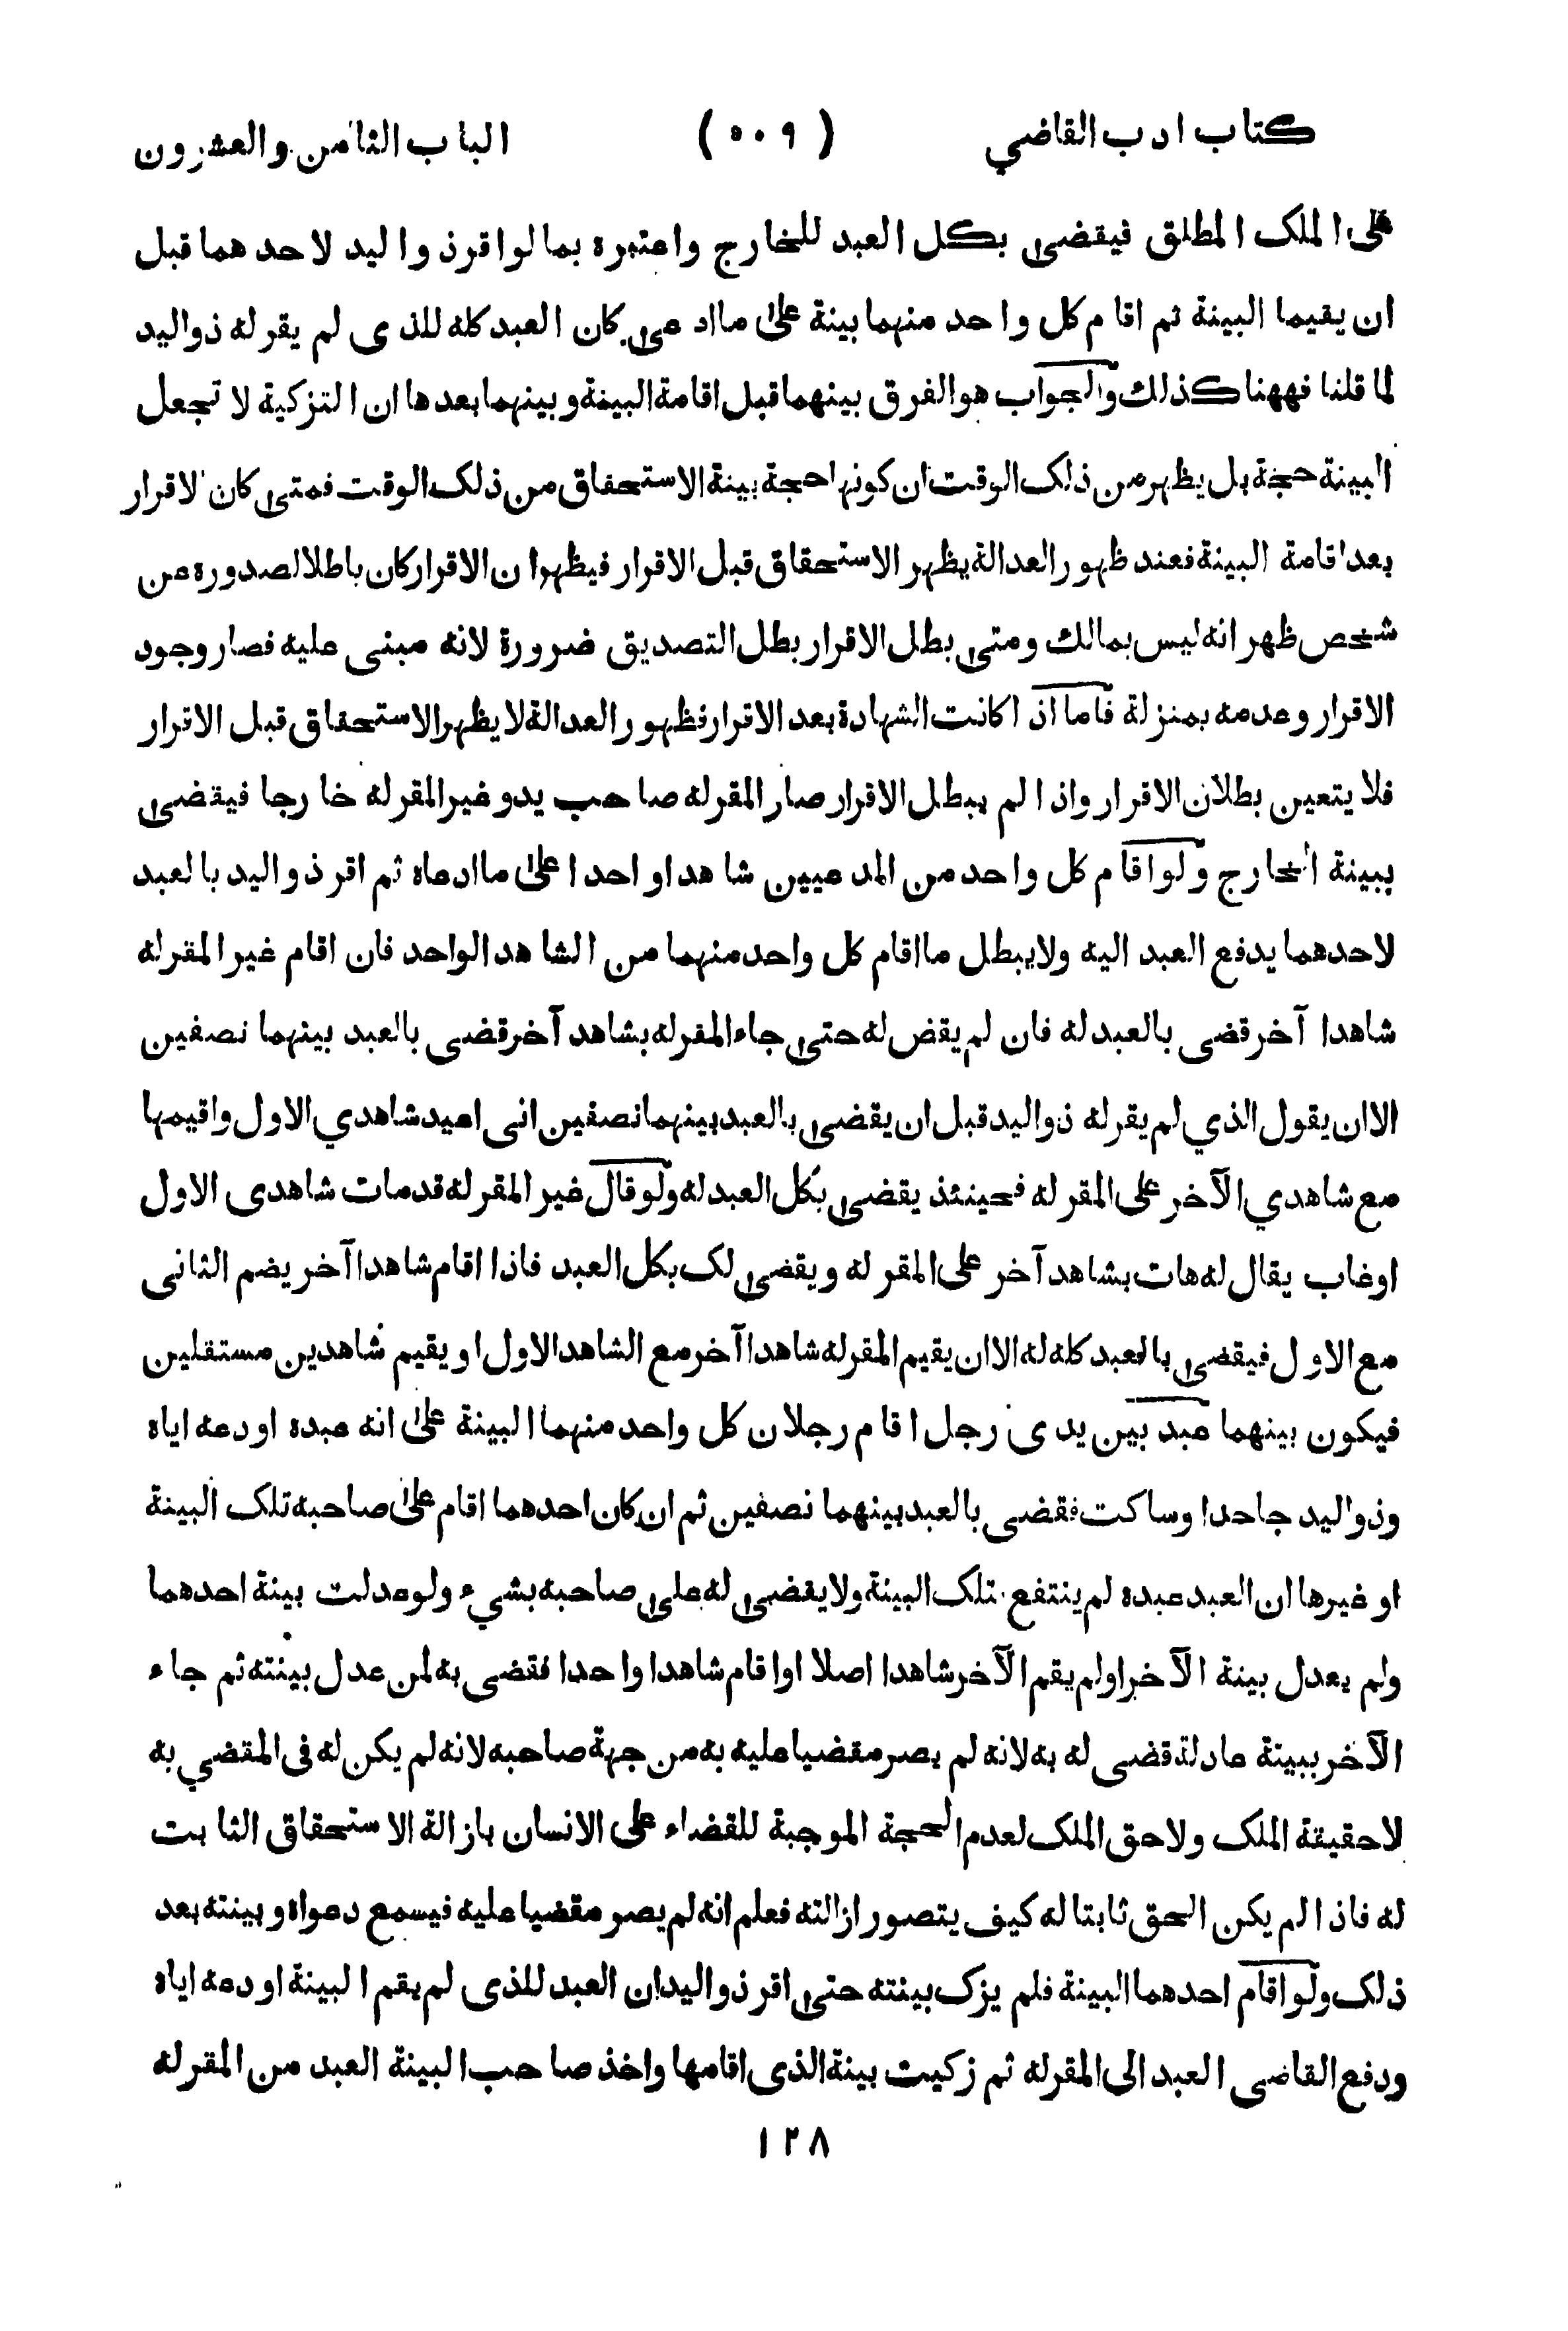 كتاب ادب القاضي
(٥٠٩)
الباب الثامن والعشرون
على الملك المطلق فيقضى بكل العبد للخارج واعتبره بما لو اقر ذو اليد لاحدهما قبل
ان يقيما البينة ثم اقام كل واحد منهما بينة على ما ادعى كان العبد كله للذى لم يقر له ذو اليد
لما قلنا فههنا كذلك والجواب هو الفرق بينهما قبل اقامة البينة وبينهما بعدها ان التزكية لا تجعل
البينة حجة بل يظهر من ذلك الوقت ان كونها حجة بينة الاستحقاق من ذلك الوقت فمتى كان الاقرار
بعد اقامة البينة فعند ظهور العدالة يظهر الاستحقاق قبل الاقرار فيظهر ان الاقرار كان باطلا لصدوره عن
شخص ظهر انه ليس بمالك ومتى بطل الاقرار بطل التصديق ضرورة لانه مبنى عليه فصار وجود
الاقرار وعدمه بمنزلة فاما اذا كانت الشهادة بعد الاقرار فظهور العدالة لا يظهر الاستحقاق قبل الاقرار
فلا يتعين بطلان الاقرار واذا لم يبطل الاقرار صار المقر له صاحب يد وغير المقر له خارجا فيقضى
ببينة الخارج ولو اقام كل واحد من المدعيين شاهدا واحدا على ما ادعاه ثم اقر ذو اليد بالعبد
لاحدهما يدفع العبد اليه ولا يبطل ما اقام كل واحد منهما من الشاهد الواحد فان اقام غير المقر له
شاهدا آخر قضى بالعبد له فان لم يقض له حتى جاء المقر له بشاهد آخر قضى بالعبد بينهما نصفين
الا ان يقول الذي لم يقر له ذو اليد قبل ان يقضى بالعبد بينهما نصفين انى اعيد شاهدي الاول واقيمها
مع شاهدي الآخر على المقر له فحينئذ يقضى بكل العبد له ولو قال غير المقر له قد مات شاهدى الاول
او غاب يقال له هات بشاهد آخر على المقر له ويقضى لك بكل العبد فاذا اقام شاهدا آخر يضم الثانى
مع الاول فيقضى بالعبد كله له الا ان يقيم المقر له شاهدا آخر مع الشاهد الاول او يقيم شاهدين مستقلين
فيكون بينهما عبد بين يدى رجل اقام رجلان كل واحد منهما البينة على انه عبده اودعه اياه
وذو اليد جاحد او ساكت فقضى بالعبد بينهما نصفين ثم ان كان احدهما اقام على صاحبه تلك البينة
او غيرها ان العبد عبده لم ينتفع بتلك البينة ولا يقضى له على صاحبه بشيء ولو عدلت بينة احدهما
ولم يعدل بينة الآخر او لم يقم الآخر شاهدا اصلا او اقام شاهدا واحدا فقضى به لمن عدل بينته ثم جاء
الآخر ببينة عادلة قضى له به لانه لم يصر مقضيا عليه به من جهة صاحبه لانه لم يكن له فى المقضي به
لا حقيقة الملك ولا حق الملك لعدم الحجة الموجبة للقضاء على الانسان بازالة الاستحقاق الثابت
له فاذا لم يكن الحق ثابتا له كيف يتصور ازالته فعلم انه لم يصر مقضيا عليه فيسمع دعواه وبينته بعد
ذلك ولو اقام احدهما البينة فلم يزك بينته حتى اقر ذو اليد ان العبد للذى لم يقم البينة اودعه اياه
ودفع القاضى العبد الى المقر له ثم زكيت بينة الذى اقامها واخذ صاحب البينة العبد من المقر له
١٢٨